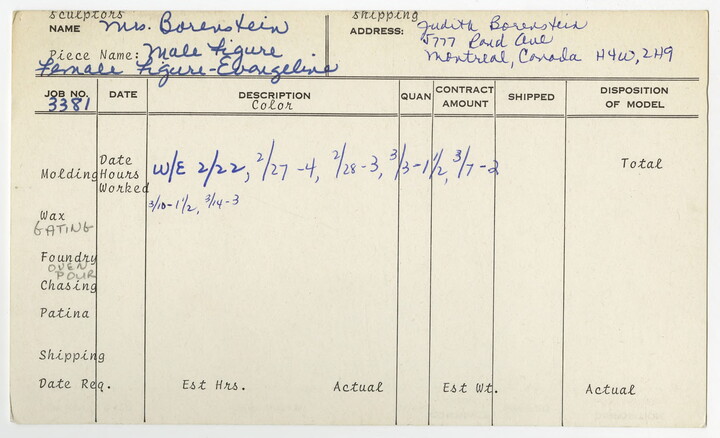 sculptors shipping
NAME Mrs. Borenstein ADDRESS: Judith Borenstein
Piece Name: Male Figure 5777 Rand Ave
Female Figure-Evangeline Montreal, Canada H4W, 2H9
JOB NO. DATE DESCRIPTION QUAN CONTRACT AMOUNT SHIPPED DISPOSITION OF MODEL
3381 Color
Molding Date Hours Worked W/E 2/22, 2/27-4, 2/28-3, 3/3-1 1/2, 3/7-2 Total
3/10-1 1/2, 3/14-3
Wax
GATING
Foundry
OVEN
POUR
Chasing
Patina
Shipping
Date Req. Est Hrs. Actual Est Wt. Actual